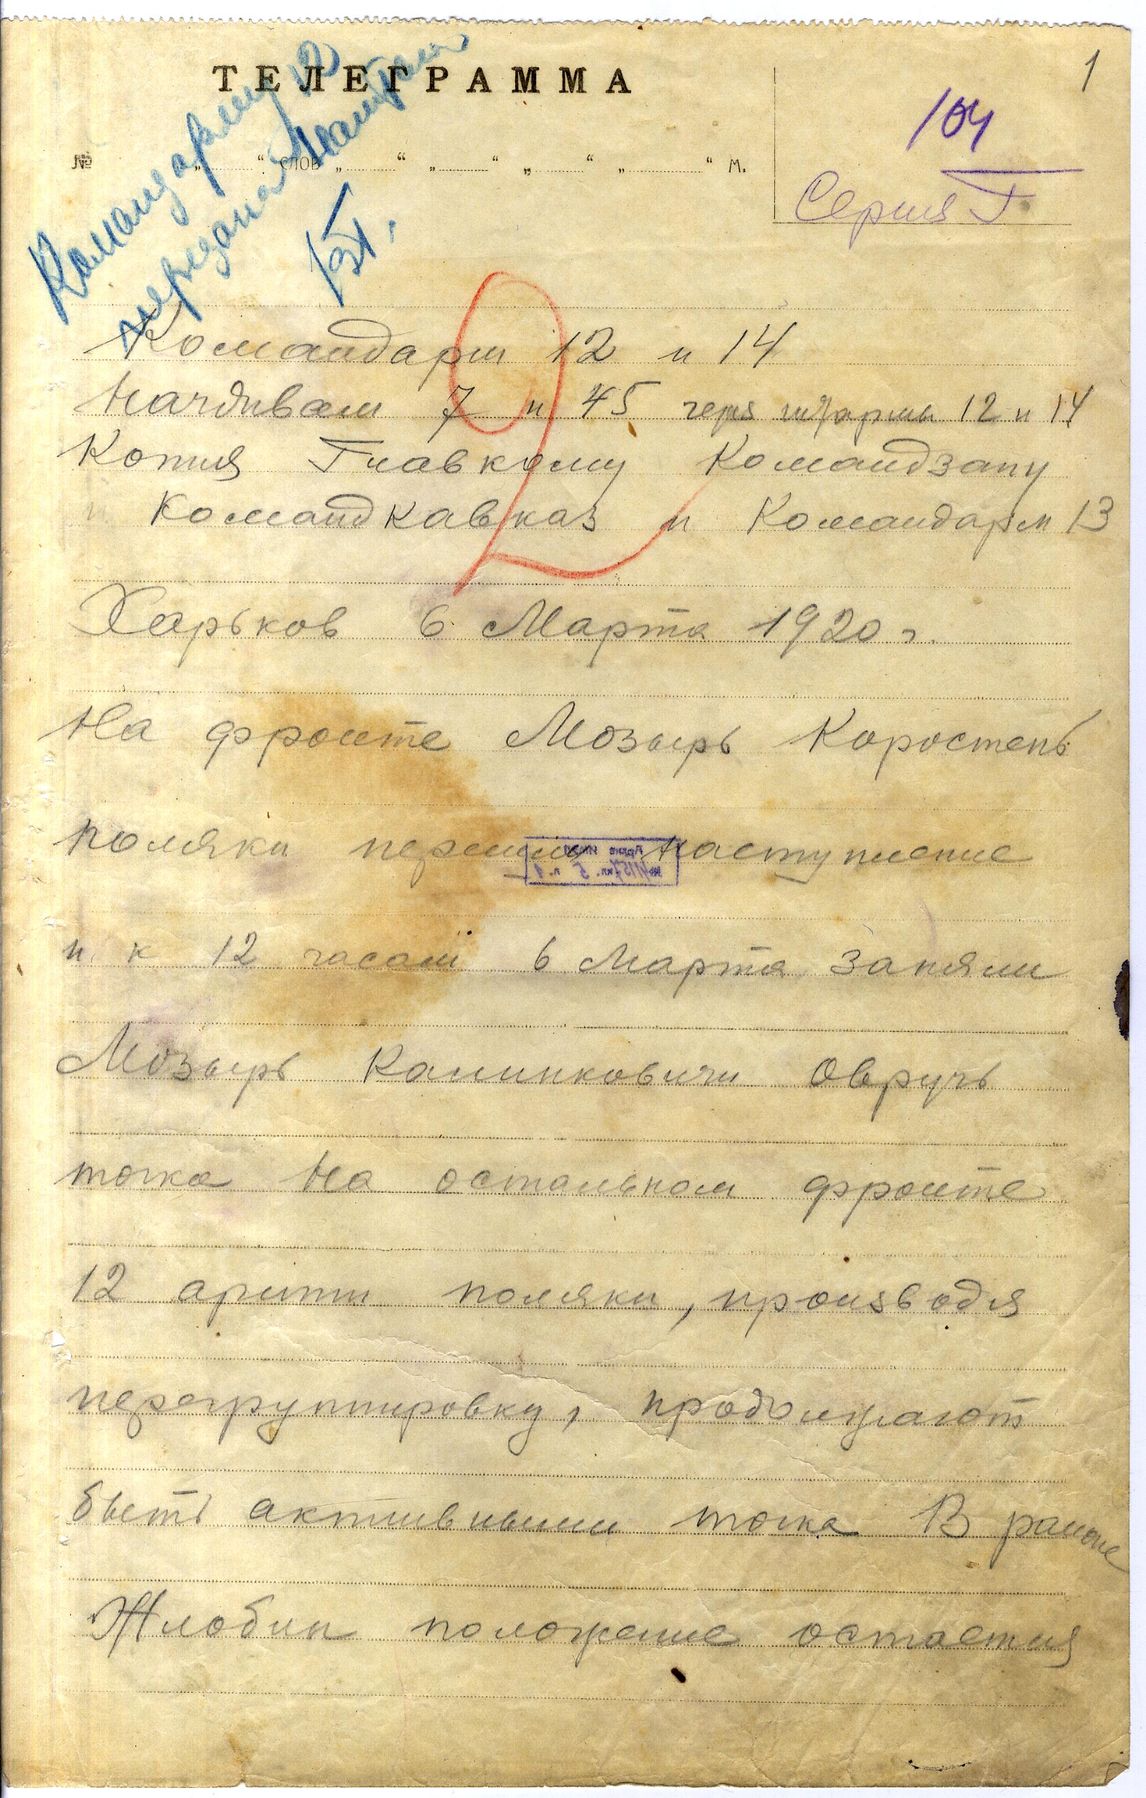 1
ТЕЛЕГРАММА
104
№ " слов " " " " " " " м.
Серия Г
Командарму 12
передана
Командарм 12 и 14
Начдивам 7 и 45 через штармы 12 и 14
Копия Главкому Командзапу
и Командкавказ и Командарм 13
2
Харьков 6 Марта 1920 г.
На фронте Мозырь Коростень
поляки перешли наступление
и к 12 часам 6 Марта заняли
Мозырь Калинковичи Овручь
точка На остальном фронте
12 армии поляки, производя
перегруппировку, продолжают
быть активными точка В районе
Жлобин положение остается